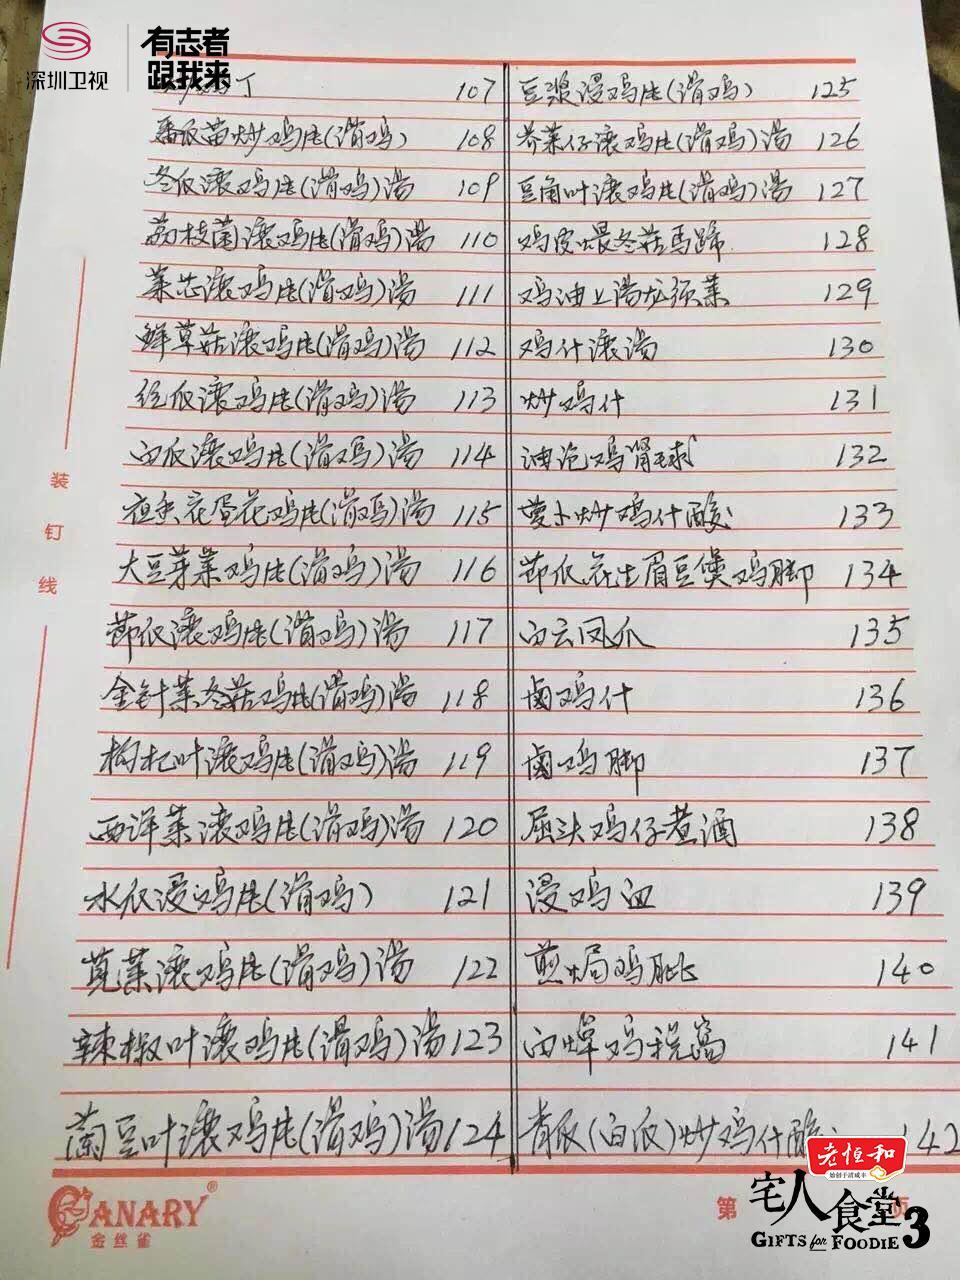 深圳卫视
有志者
跟我来
丁 107
番瓜苗炒鸡片(滑鸡) 108
冬瓜滚鸡片(滑鸡)汤 109
荔枝菌滚鸡片(滑鸡)汤 110
菜芯滚鸡片(滑鸡)汤 111
鲜草菇滚鸡片(滑鸡)汤 112
丝瓜滚鸡片(滑鸡)汤 113
白瓜滚鸡片(滑鸡)汤 114
夜香花蛋花鸡片(滑鸡)汤 115
大豆芽菜鸡片(滑鸡)汤 116
节瓜滚鸡片(滑鸡)汤 117
金针菜冬菇鸡片(滑鸡)汤 118
枸杞叶滚鸡片(滑鸡)汤 119
西洋菜滚鸡片(滑鸡)汤 120
水瓜浸鸡片(滑鸡) 121
苋菜滚鸡片(滑鸡)汤 122
辣椒叶滚鸡片(滑鸡)汤 123
豆叶滚鸡片(滑鸡)汤 124
豆浆浸鸡片(滑鸡) 125
芥菜仔滚鸡片(滑鸡)汤 126
豆角叶滚鸡片(滑鸡)汤 127
鸡皮煨冬菇马蹄 128
鸡油上汤龙须菜 129
鸡什滚汤 130
炒鸡什 131
油泡鸡肾球 132
萝卜炒鸡什酸 133
节瓜花生眉豆煲鸡脚 134
白云凤爪 135
卤鸡什 136
卤鸡脚 137
屈头鸡仔煮酒 138
浸鸡血 139
煎焗鸡 140
白焯鸡 141
青瓜(白瓜)炒鸡什酸 142
装
钉
线
CANARY®
金丝雀
第 页
老恒和
始创于清咸丰
宅人食堂3
GIFTS for FOODIE